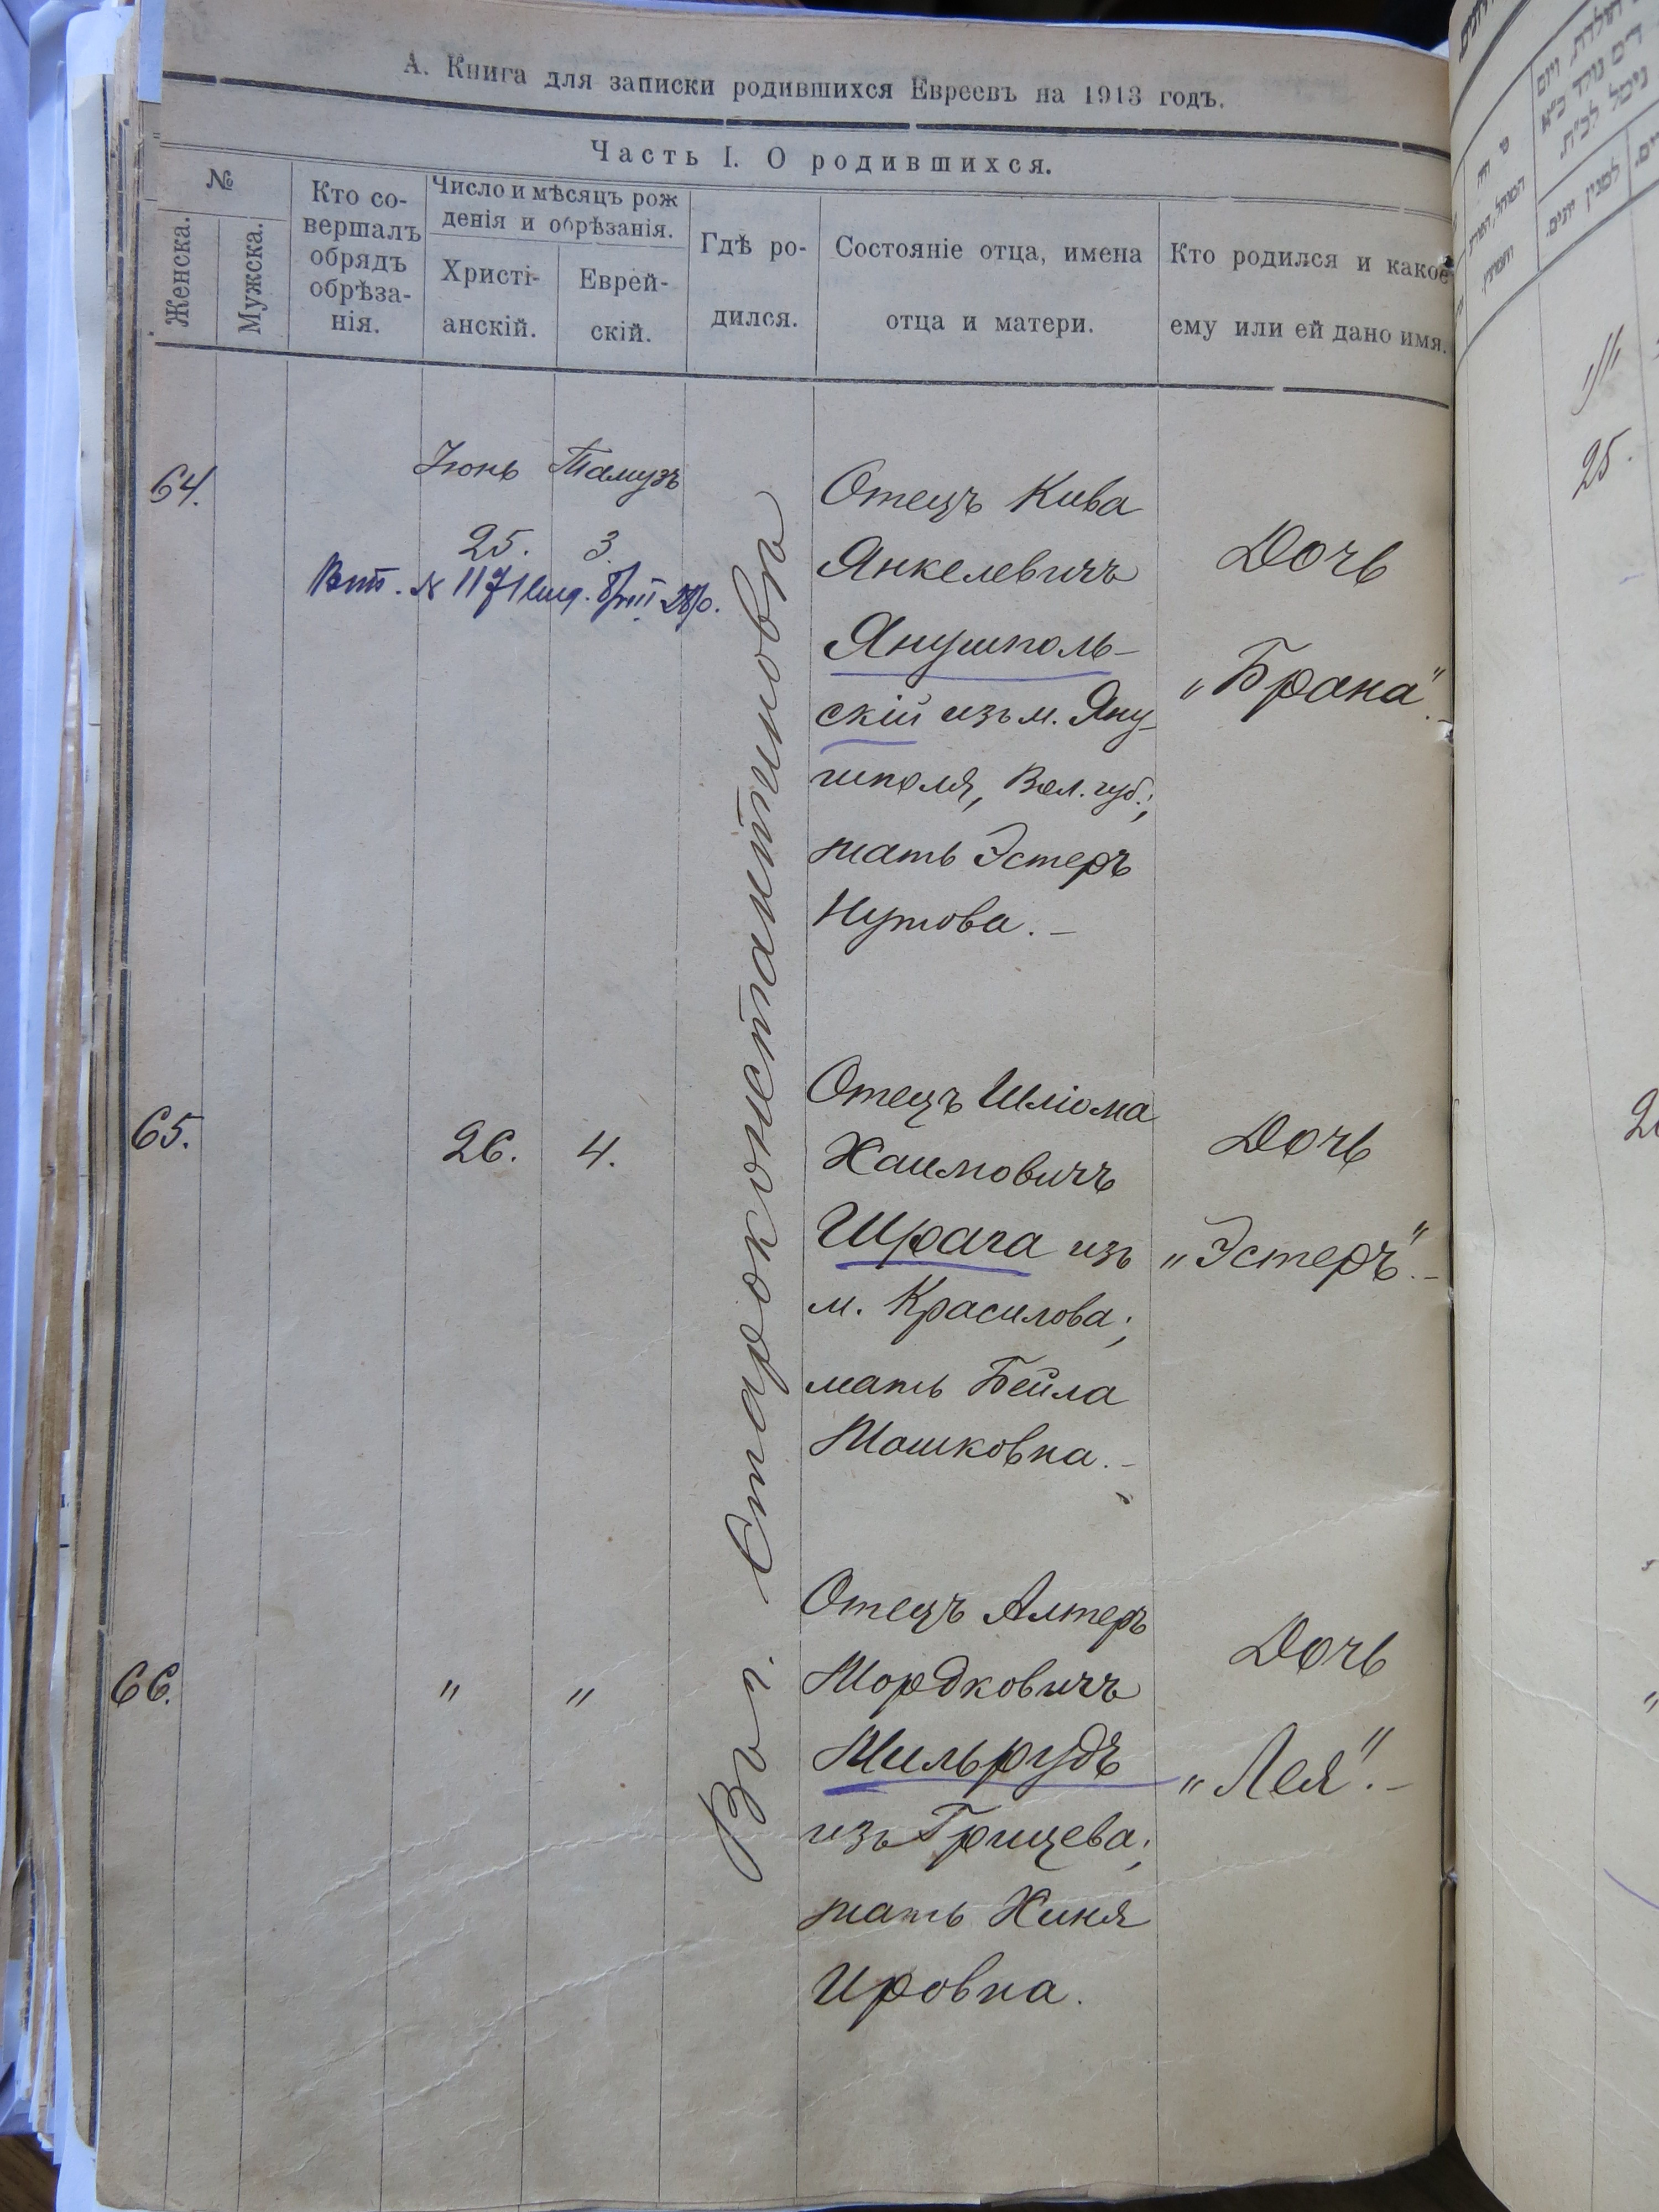 А. Книга для записки родившихся Евреевъ на 1913 годъ.
Часть I. О родившихся.
№
Женска.
Мужска.
Кто со-
вершалъ
обрядъ
обрѣза-
нія.
Число и мѣсяцъ рож
денія и обрѣзанія.
Христі-
анскій.
Еврей-
скій.
Гдѣ ро-
дился.
Состояніе отца, имена
отца и матери.
Кто родился и какое
ему или ей дано имя.
Въ г. Староконстантиновѣ
64.
Іюнь Тамузъ
25. 3.
№ 1171
Отецъ Кива
Янкелевичъ
Янушполь-
скій изъ м. Яну-
шполя, Вол. губ.;
мать Эстеръ
Нутова. –
Дочь
„Брана". –
65.
26. 4.
Отецъ Шліома
Хаимовичъ
Шрага изъ
м. Красилова;
мать Бейла
Мошковна. –
Дочь
„Эстеръ". –
66.
" "
Отецъ Алтеръ
Мордковичъ
Мильрудъ
изъ Грицева;
мать Хиня
Ировна.
Дочь
„Лея". –
25.